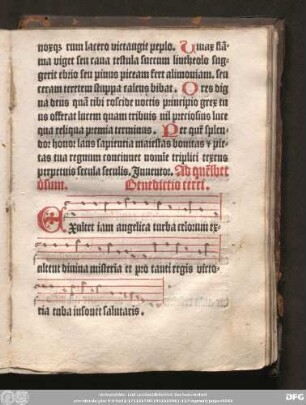 noxqꝫ cum lacero victaugit peplo. Uivax flā-
ma viget seu cana testula succum liuetheolo sug-
gerit ebrio seu pinus piceam fert alimoniam. seu
ceram teretem stuppa calens bibat. O res dig
na deus quā tibi roscide noctis principio grex tu
us offerat lucem quam tribuis nil preciosius luce
qua reliqua premia cernimus. Per quē splen-
dor honor laus sapientia maiestas bonitas et pie-
tas tua regnum continuet nomīe triplici texens
perpetuis secula seculis. Inuentor.
Benedictio cerei.
EXultet iam angelica turba celorum ex-
ultent diuina misteria et pro tanti regis victo-
ria tuba insonet salutaris.